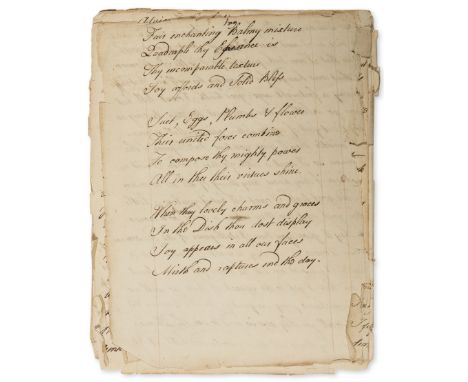 Fair enchanting Balmy mixture
Quadruple thy Essence is
Thy incomparable texture
Joy affords and Solid Bliss
Suet, Eggs, Plumbs & flower
Their united force combine
To compose thy mighty power
All in thee their virtues shine.
When thy lovely charms and graces
In the Dish thou dost display
Joy appears in all our faces
Mirth and raptures end the day.